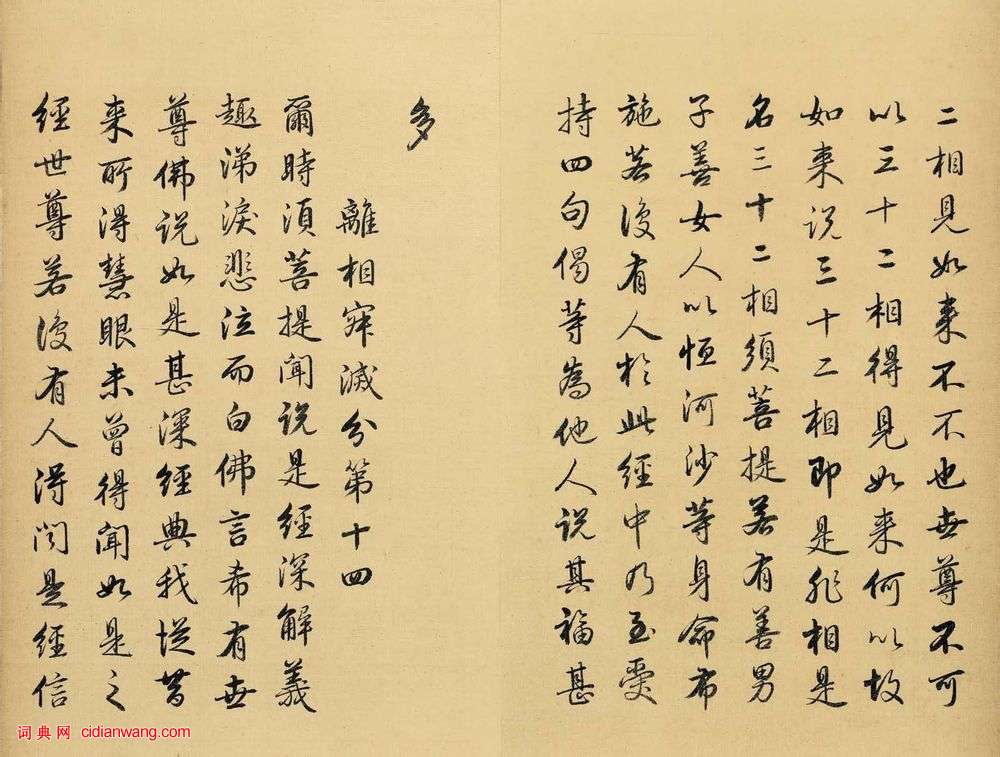 二相見如来不不也世尊不可
以三十二相得見如来何以故
如来说三十二相即是非相是
名三十二相須菩提若有善男
子善女人以恒河沙等身命布
施若復有人於此經中乃至受
持四句偈等為他人说其福甚
多
離相寂滅分第十四
爾時須菩提聞说是經深解義
趣涕淚悲泣而白佛言希有世
尊佛说如是甚深經典我從昔
来所得慧眼未曾得聞如是之
經世尊若復有人得聞是經信
词典网 cidianwang.com